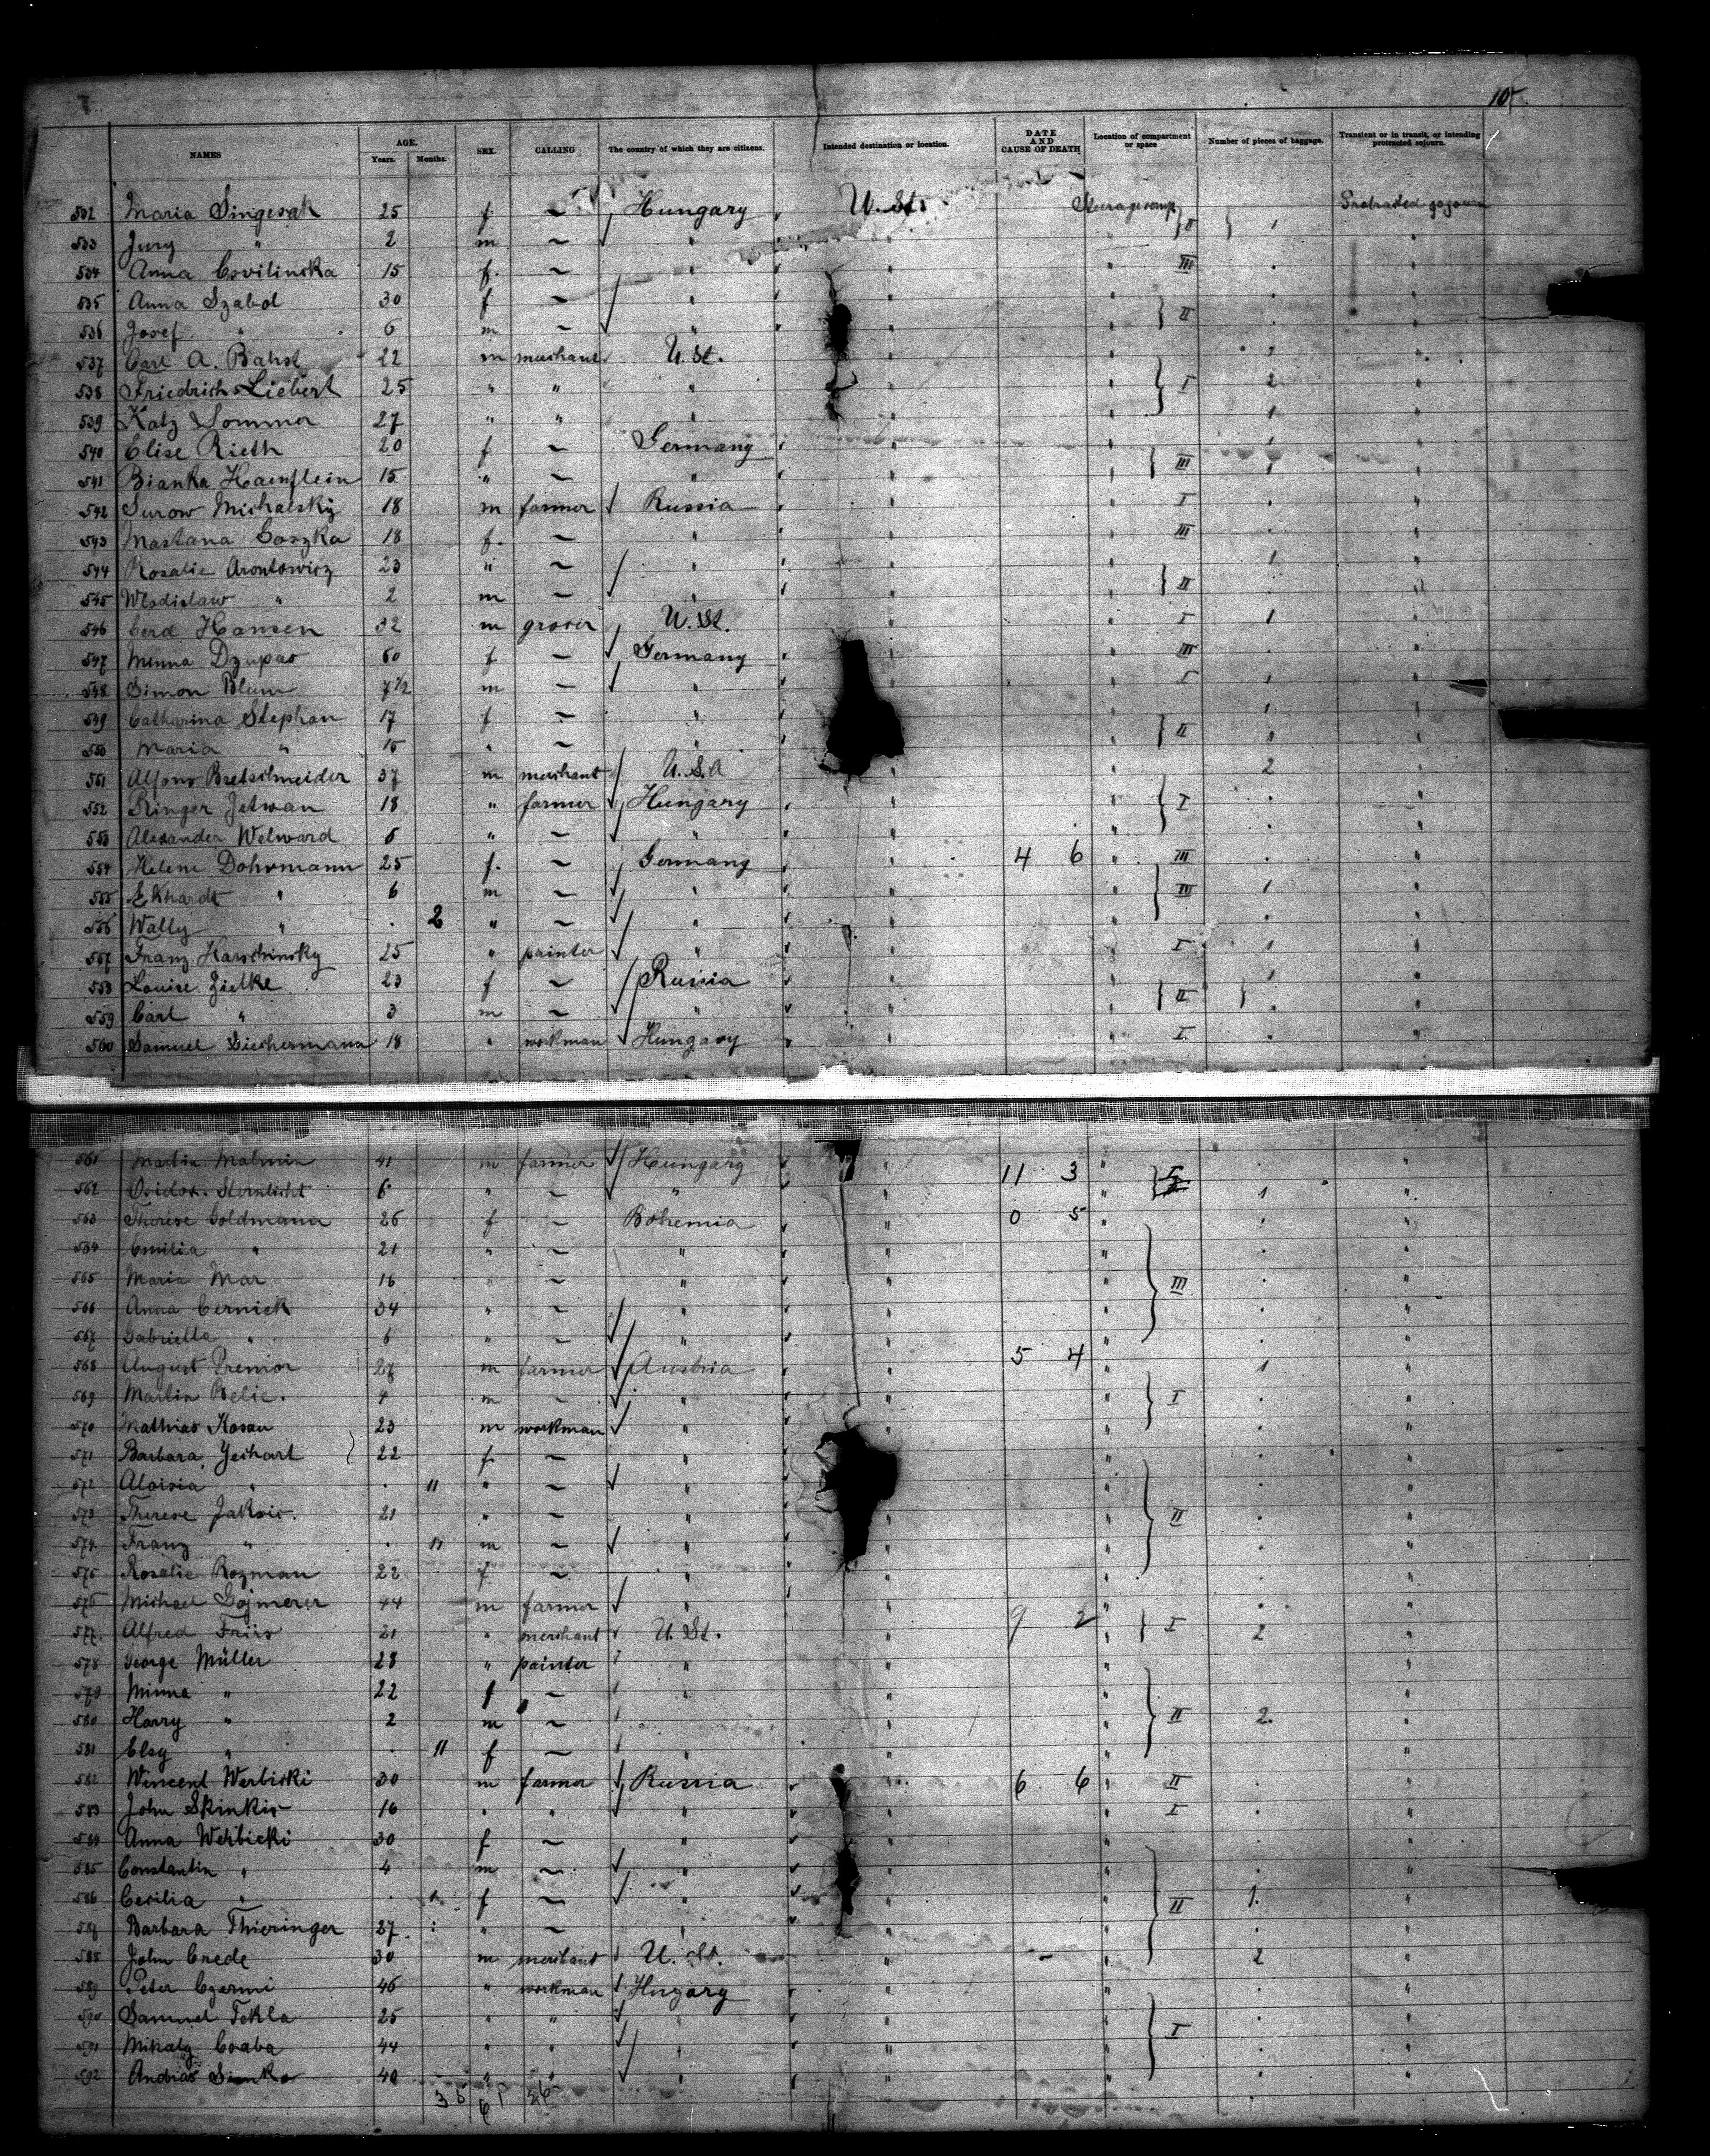 105.
NAMES AGE. SEX. CALLING The country of which they are citizens. Intended destination or location. DATE AND CAUSE OF DEATH Location of compartment or space Number of pieces of baggage. Transient or in transit, or intending protracted sojourn.
Years. Months.
532 Maria 25 f ~ Hungary U. St. II 1
533 Jury " 2 m ~ "
534 Anna 15 f. ~ " III
535 Anna Szabol 30 f ~ " II
536 Josef " 6 m ~ "
537 Carl A. 22 m merchant U. St. 2
538 Friedrich Liebert 25 " " " I 2
539 Katz Sommer 27 " " " 1
540 Elise Rieth 20 f ~ Germany 1
541 Bianka Haenflein 15 " ~ " III 1
542 Surow Michalsky 18 m farmer Russia I
543 18 f. ~ " III
544 Rosalie Arontowicz 23 " ~ " 1
545 Wladislaw " 2 m ~ " II
546 Gerd Hansen 32 m grocer U. St. I 1
547 Minna Dzupas 60 f ~ Germany III
548 Simon Blum 7½ m ~ " I 1
549 Catharina Stephan 17 f ~ " 1
550 Maria " ~ " II
551 Alfons Bretschneider 37 m merchant U.S.A 2
552 Ringer Jstwan 18 " farmer Hungary I
553 Alexander Welward 6 " ~ "
554 Helene Dohrmann 25 f. ~ Germany 4 6 III
555 Ekhardt " 6 m ~ " III 1
556 Wally " . 2 " ~ "
557 Franz Harschinsky 25 " painter " I 1
558 Louise Zielke 23 f ~ Russia 1
559 Carl " 3 m ~ " II
560 Samuel 18 " workman Hungary I
561 Martin Malmin 41 m farmer Hungary 11 3 I
562 Sternlicht 6 " ~ " 1
563 Therese Goldmann 26 f ~ Bohemia 0 5
564 Emilia " 21 " ~ "
565 Maria Mar 16 ~ " III
566 Anna Cernick 34 " ~ "
567 Gabriella " 6 " ~ "
568 August Premor 27 m farmer Austria 5 4 1
569 Martin Belic. 4 m ~ " I
570 Mathias Kosau 23 m workman "
571 Barbara 22 f ~ "
572 Aloisia " . 11 " ~ "
573 Therese Jaksic. 21 " ~ " II
574 Franz " . 11 m ~ "
575 Rosalie Rozman 22 f ~ "
576 Michael Gojmerer 44 m farmer "
577. Alfred Friis 21 " merchant U. St. 9 2 I 2
578 George Müller 28 " painter "
579 Minna " 22 f ~ "
580 Harry " 2 m ~ II 2.
581 Elsy " . 11 f ~ "
582 Wincent Werbiski 30 m farmer Russia 6 6 II
583 John Skinkis 16 " " " I
584 Anna Werbicki 30 f ~ "
585 Constantin " 4 m ~ "
586 Cecilia " . f ~ " II 1.
587 Barbara Thieringer 27. " ~ "
588 John Crede 30 m merchant U. St. 2
589 Peter Czarmi 46 " workman Hngary
590 Samuel Tekla 25 " " "
591 Mihaly Csaba 44 " " " I
592 Andras 40 " " "